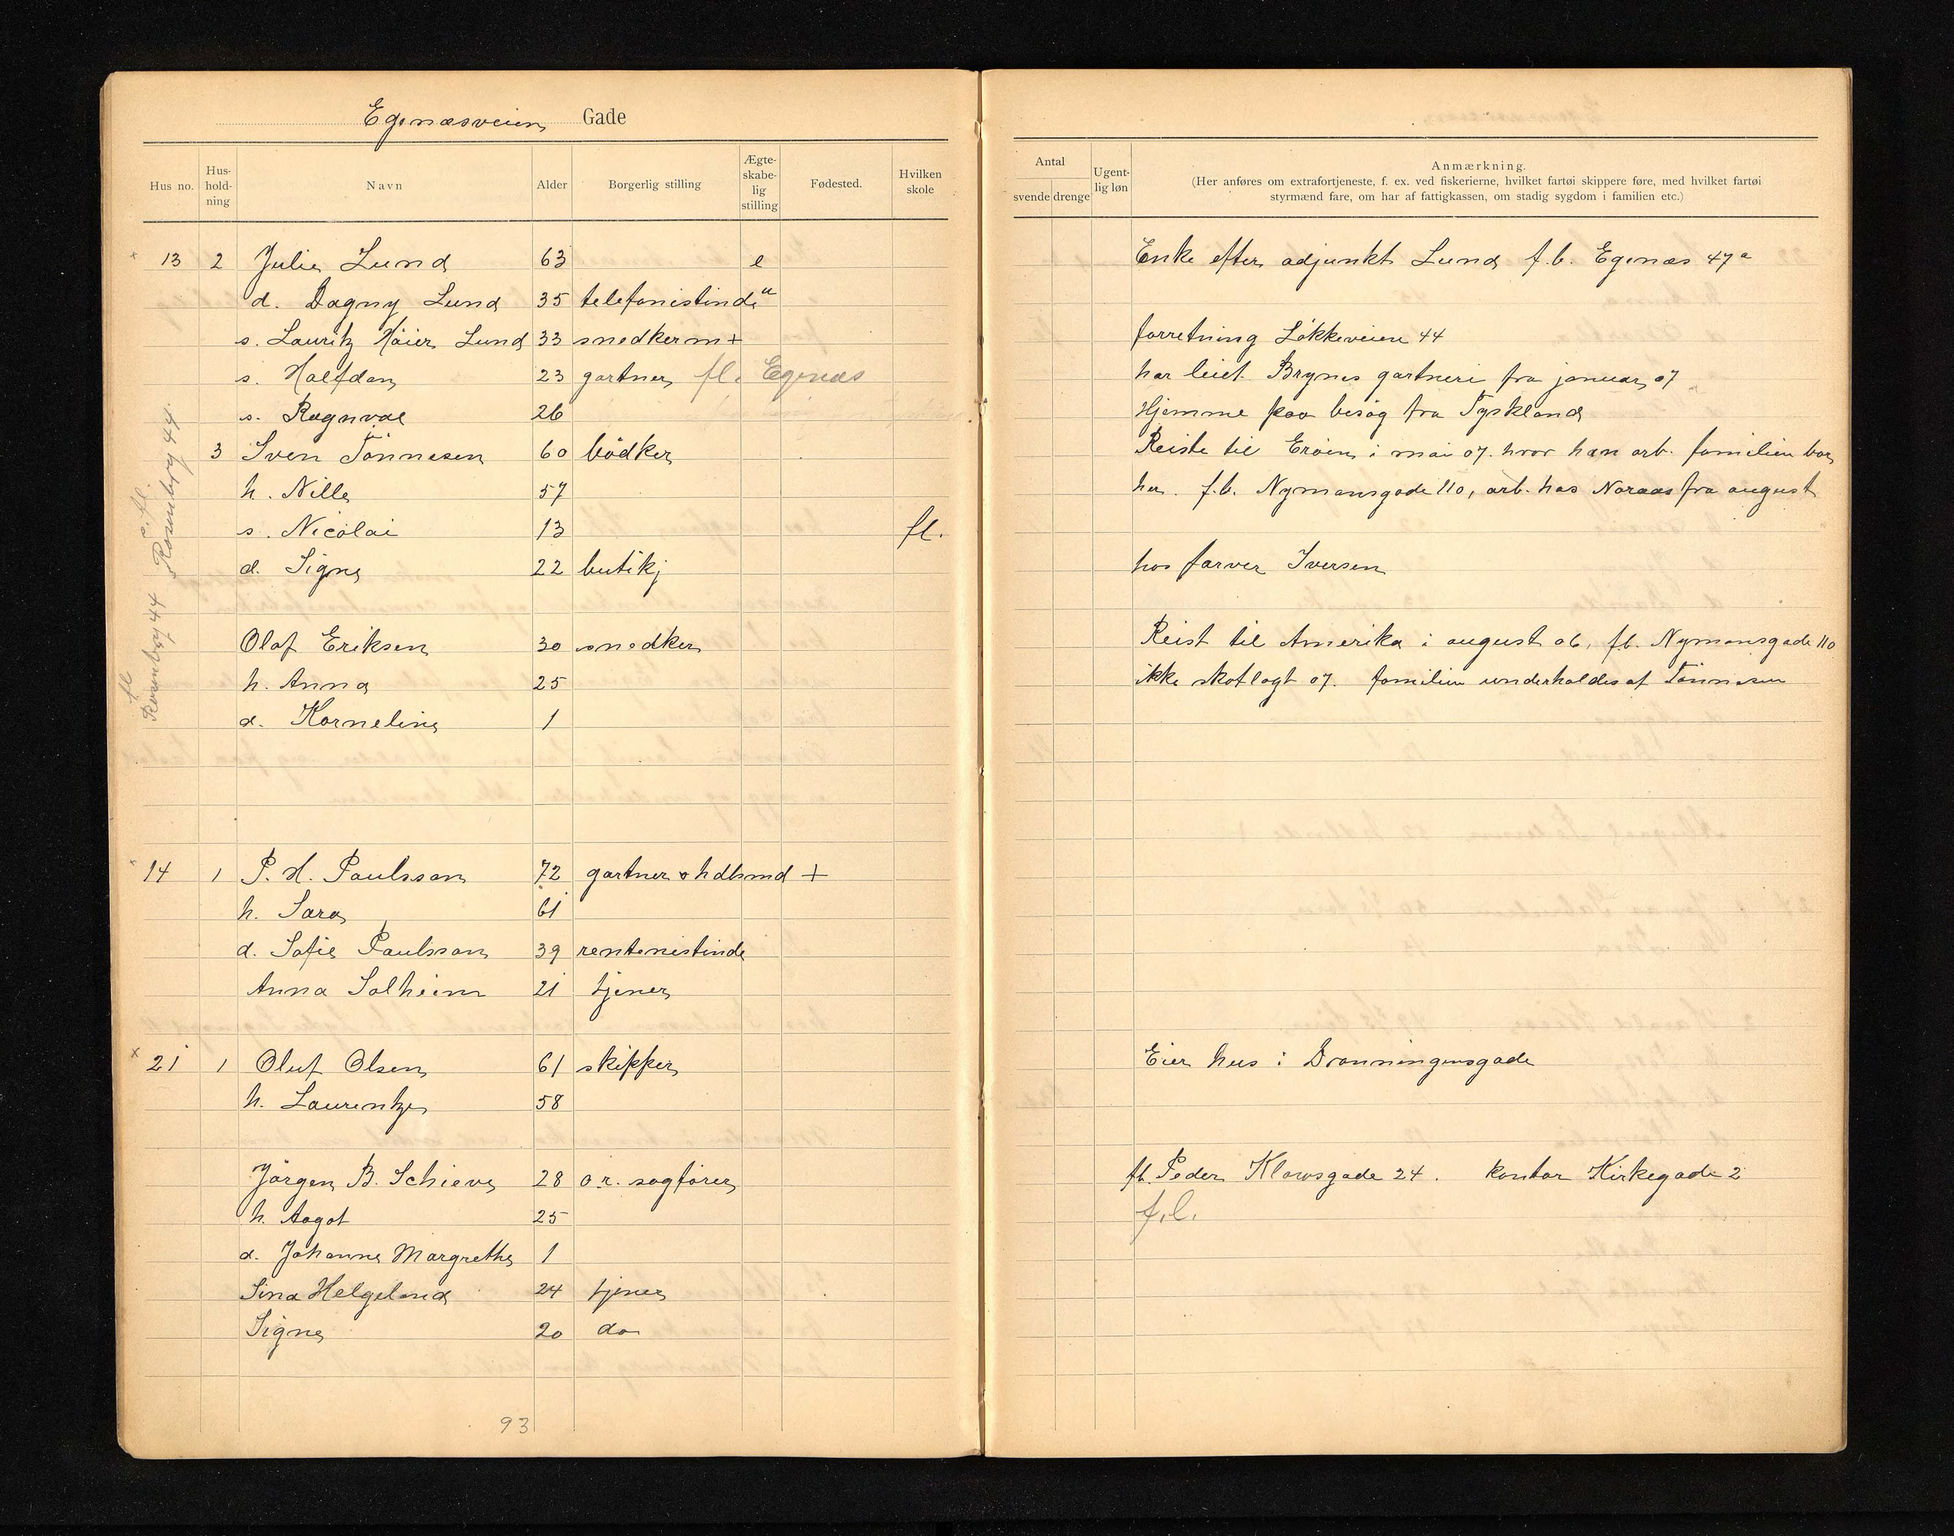 Egenæsveien Gade
Hus no. Hus-hold-ning Navn Alder Borgerlig stilling Ægte-skabe-lig stilling Fødested. Hvilken skole
Antal svende drenge Ugent-lig løn Anmærkning.
(Her anføres om extrafortjeneste, f. ex. ved fiskerierne, hvilket fartøi skippere føre, med hvilket fartøi
styrmænd fare, om har af fattigkassen, om stadig sygdom i familien etc.)
13 2 Julie Lund 63 e Enke efter adjunkt Lund f.b. Egenæs 47a
d. Dagny Lund 35 telefonistinde u
s. Lauritz Höier Lund 33 snedkerm + forretning Lökkeveien 44
s. Halfdan 23 gartner fl. Egenæs har leiet Brynes gartneri fra januar 07
s. Ragnval 26 Hjemme paa besög fra Tyskland
3 Sven Tönnesen 60 bödker Reiste til Eröen i mai 07. hvor han arb. familien bor
h. Nille 57 her. f.b. Nymansgade 110, arb. hos Noraas fra august
s. Nicolai 13 fl.
d. Signe 22 butikj hos farver Iversen
Olaf Eriksen 30 snedker Reist til Amerika i august 06, fb. Nymansgade 110
h. Anna 25 ikke skatlagt 07. familien underholdes af Tönnesen
d. Korneline 1
fl Rosenberg 44
fl. Rosenberg 44.
14 1 P. H. Paulsson 72 gartner o hdlsmd +
h. Sara 61
d. Sofie Paulsson 39 rentenistinde
Anna Solheim 21 tjener
x 21 1 Oluf Olsen 61 skipper Eier hus i Dronningensgade
h. Laurentze 58
Jörgen B. Schieve 28 o.r. sagförer fb. Peder Klowsgade 24. kontor Kirkegade 2
h. Aagot 25 f.l.
d. Johanne Margrethe 1
Sina Helgeland 24 tjener
Signe 20 do
93